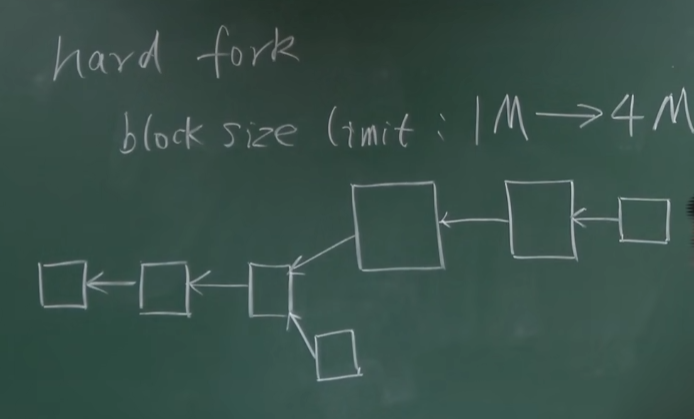 hard fork
block size limit : 1M→4M